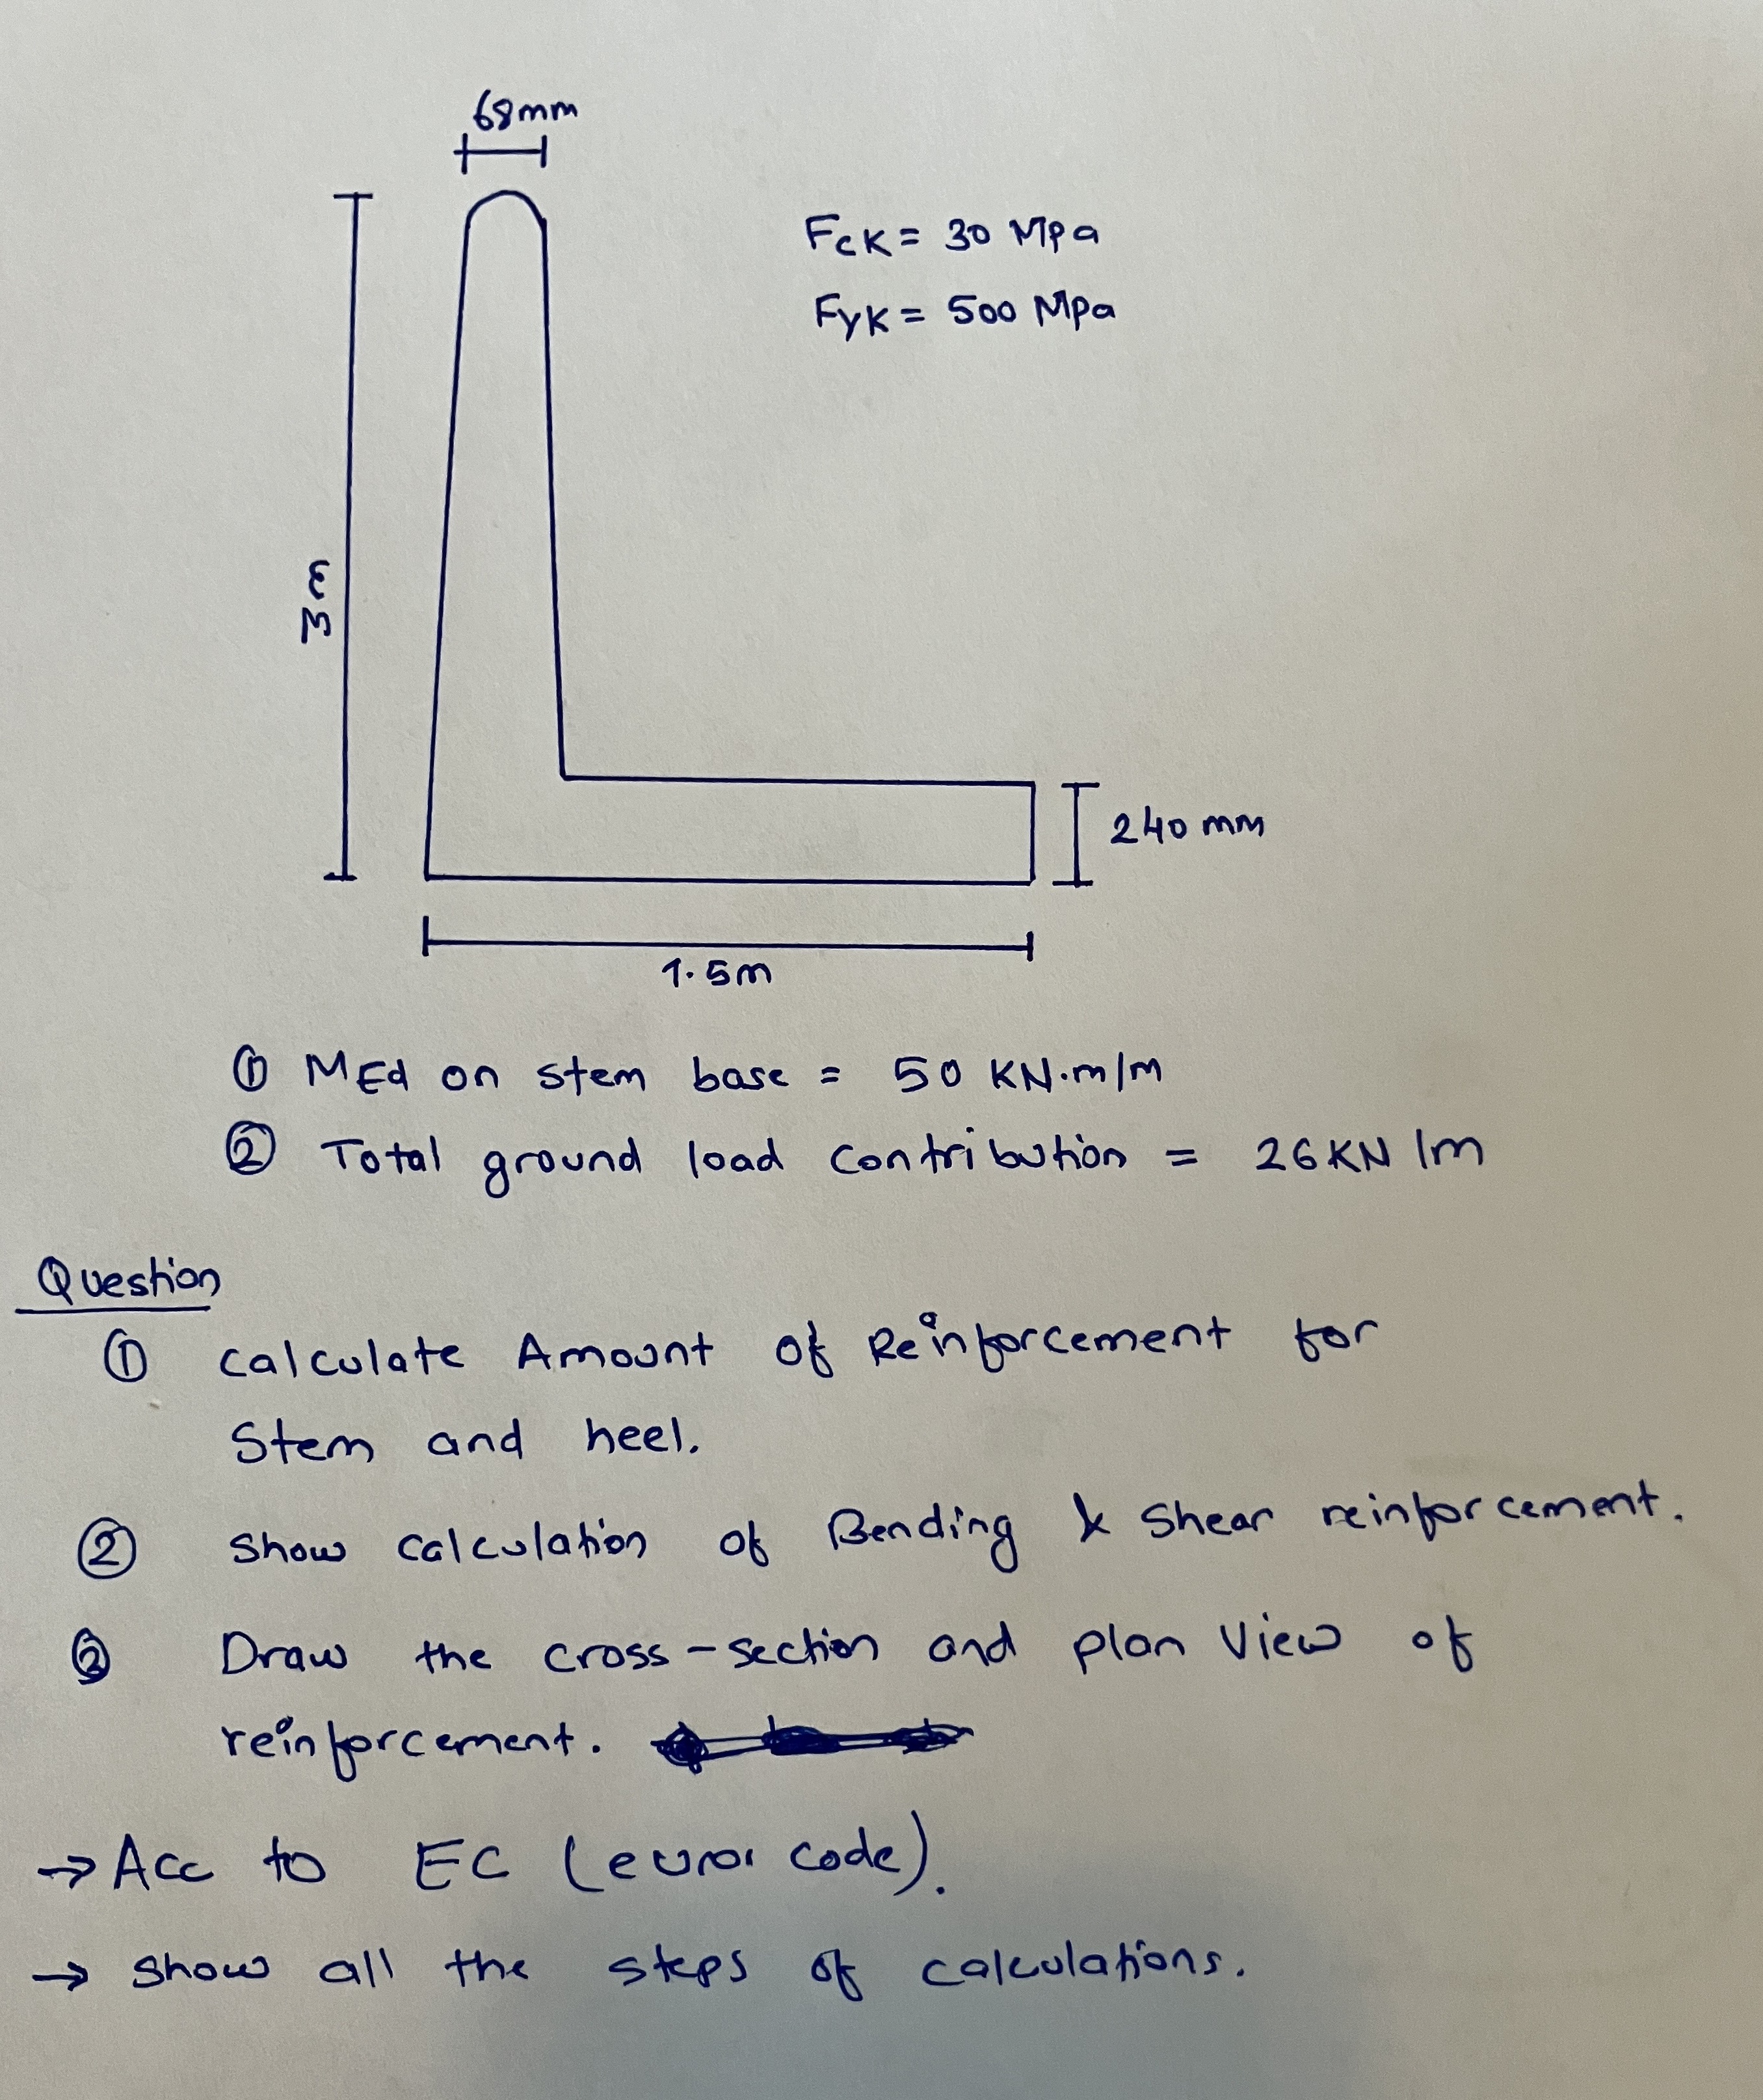 68mm
FcK = 30 Mpa
FyK = 500 Mpa
3m
240 mm
1.5m
① MEd on stem base = 50 KN.m/m
② Total ground load contribution = 26KN/m
Question
① calculate Amount of Reinforcement for
Stem and heel.
② show calculation of Bending & Shear reinforcement.
③ Draw the cross-section and plan view of
reinforcement.
→ Acc to EC (euro code).
→ show all the steps of calculations.